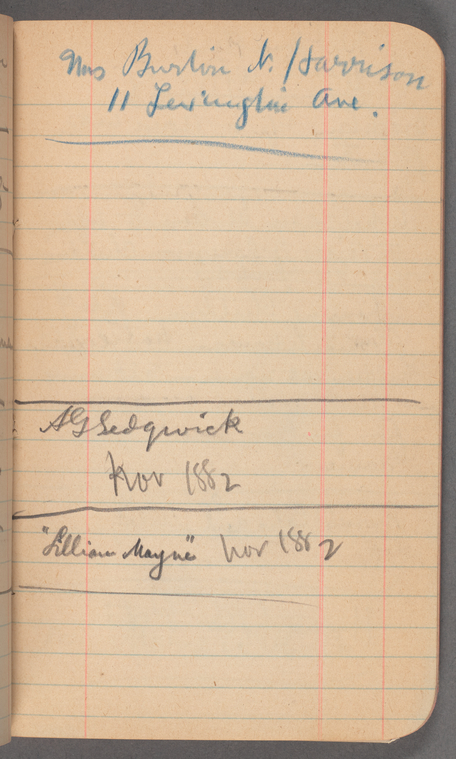 Mrs Burton N. Harrison
11 Lexington Ave.
AG Sedgwick
Nov 1882
"Lillian Mayne" Nov 1882